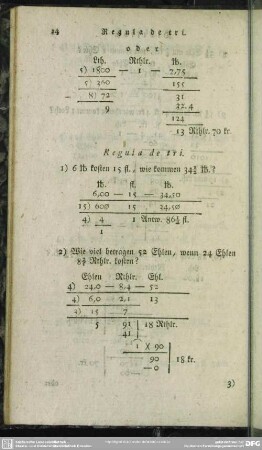 14 Regula de tri.
oder
Lth. Rthlr. ℔.
5) 1800 — 1 — 2,75
5) 360 155
8) 72 31
9 22.4
124
13 Rthlr. 70 kr.
Regula de tri.
1) 6 ℔ kosten 15 fl., wie kommen 34½ ℔.?
℔. fl. ℔.
6,00 — 15 — 34,50
15) 600 15 24,50
4) 4 1 Antw. 86¼ fl.
1
2) Wie viel betragen 52 Ehlen, wenn 24 Ehlen
Rthlr. kosten?
Ehlen Rthlr. Ehl.
4) 24,0 — 8,4 — 52
4) 6,0 — 2,1 13
3) 15 7
5 91 18 Rthlr.
41
1 X 90
90 18 kr.
—0
3)